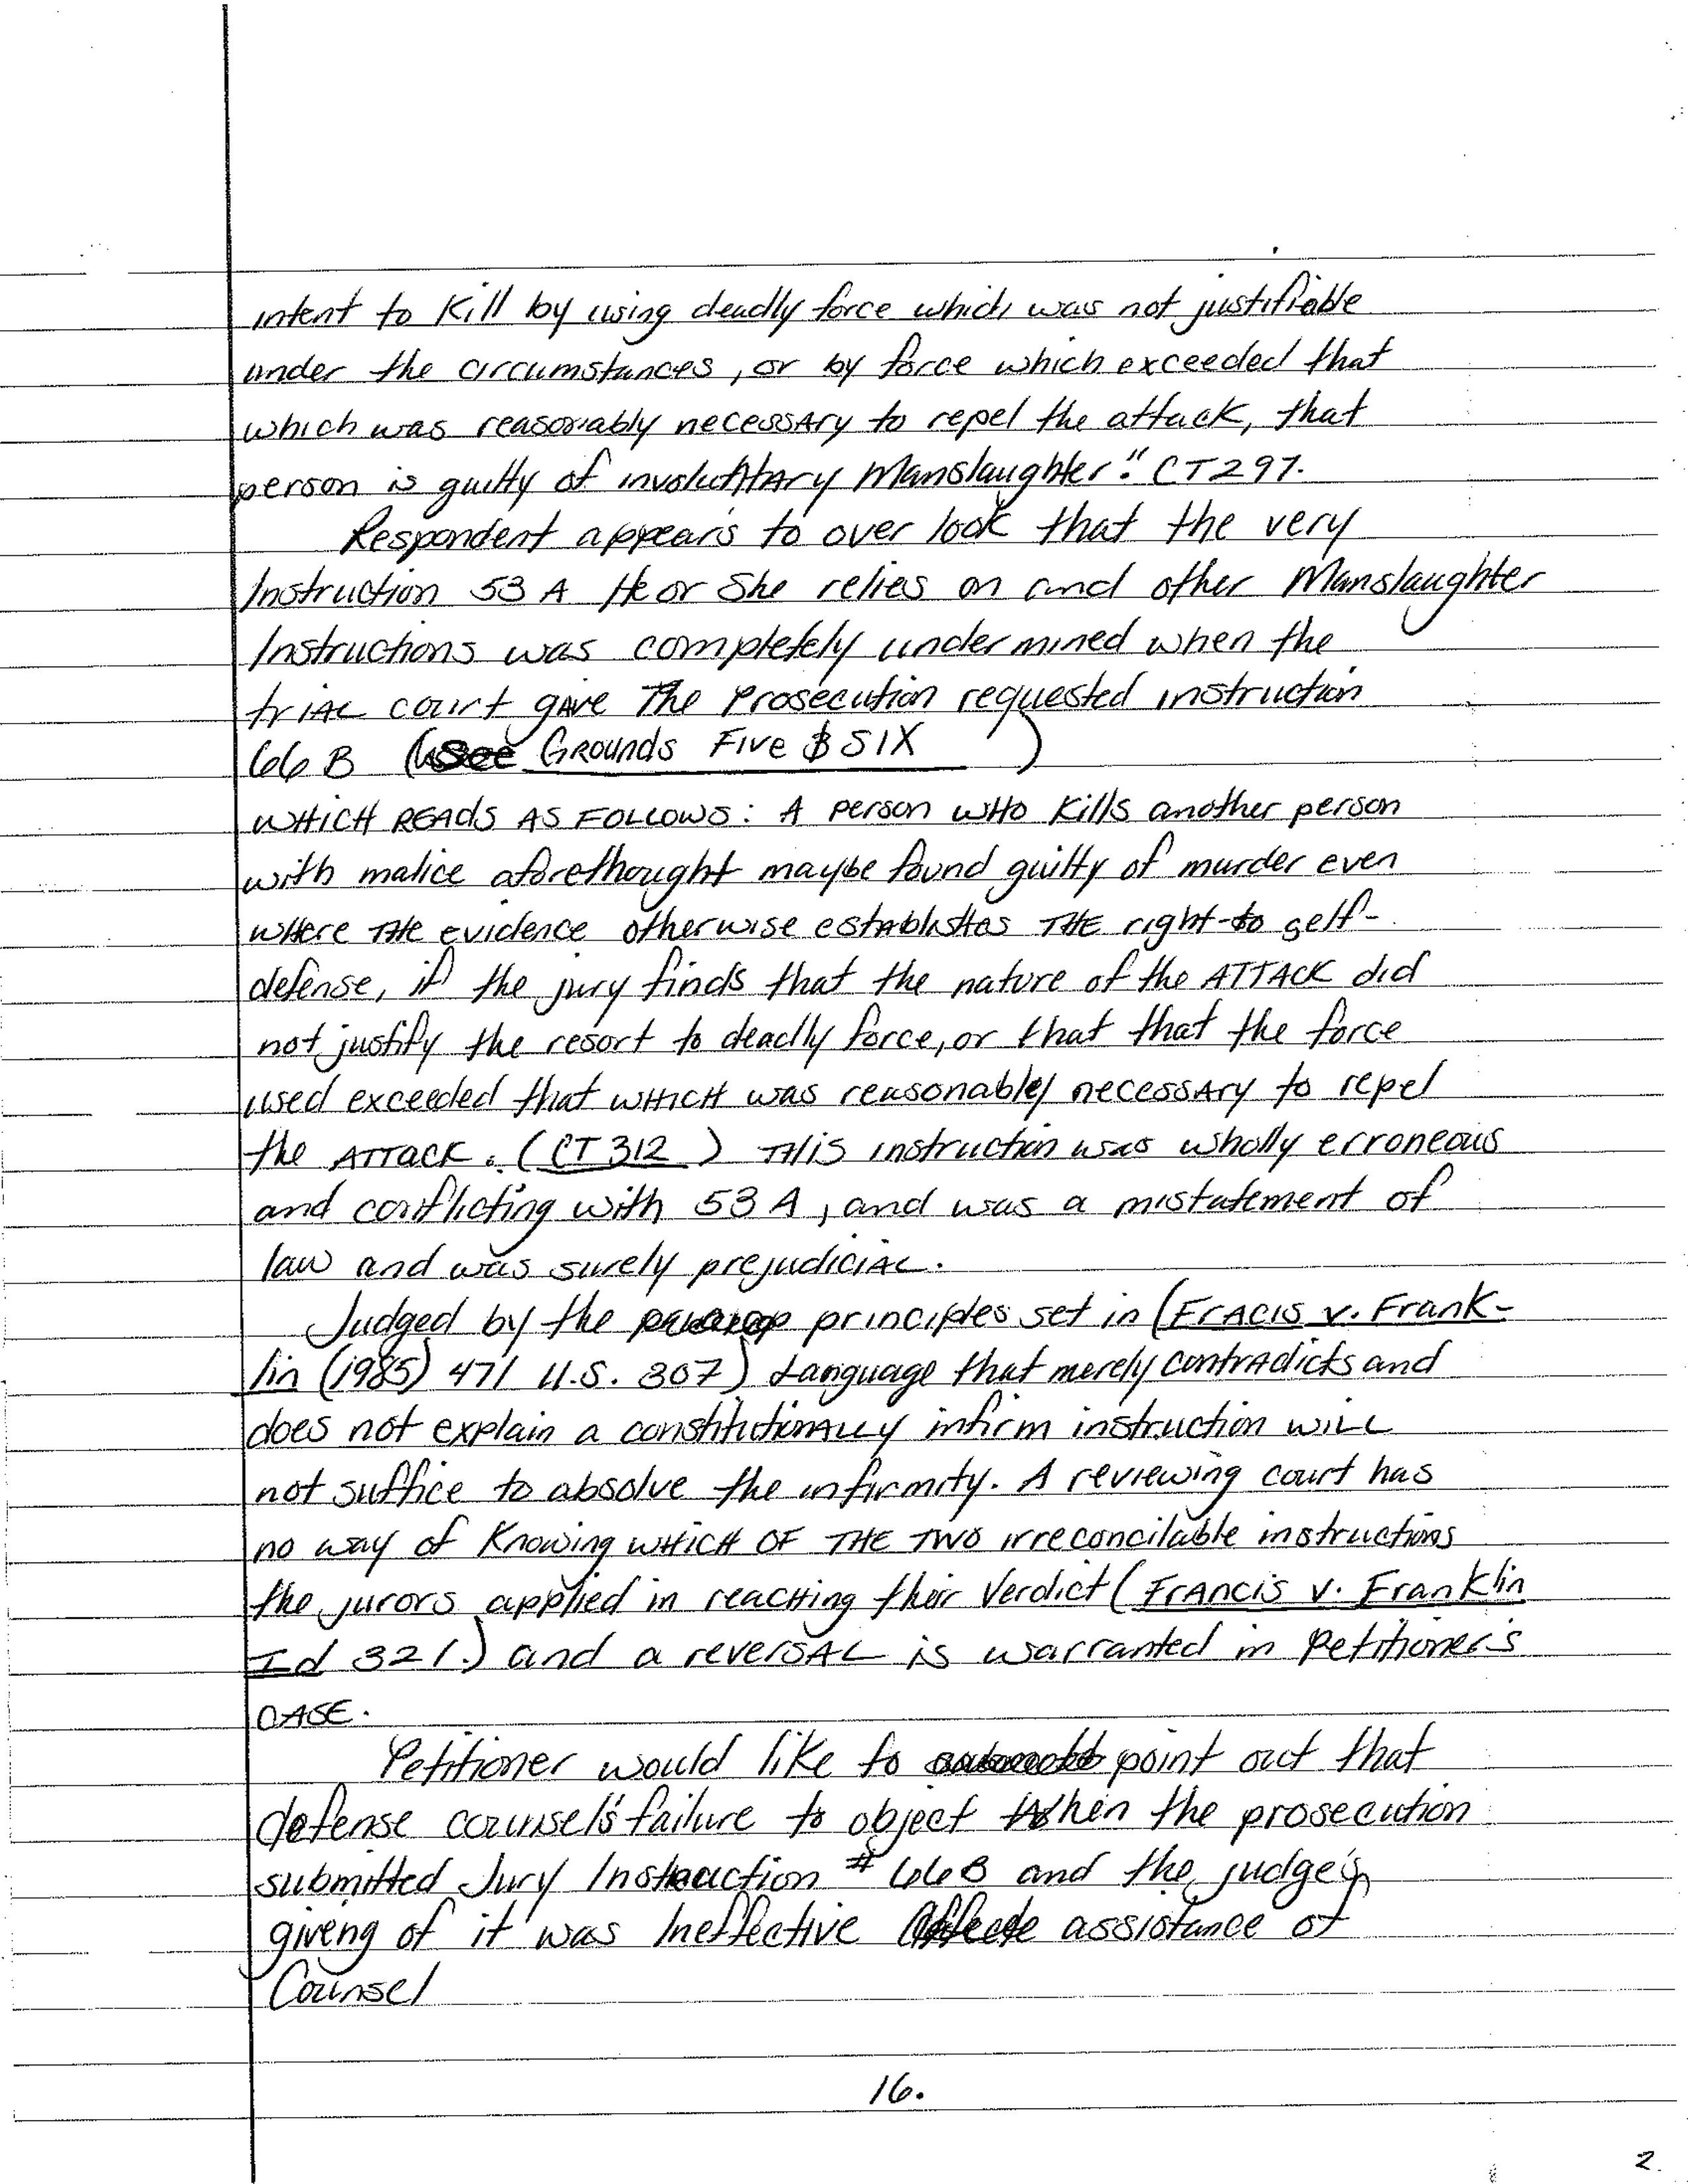 intent to Kill by using deadly force which was not justifiable
under the circumstances, or by force which exceeded that
which was reasonably necessary to repel the attack, that
person is guilty of involuntary Manslaughter." CT 297.
Respondent appears to over look that the very
Instruction 53 A He or She relies on and other Manslaughter
Instructions was completely undermined when the
triAL court gave The Prosecution requested instruction
66 B (See GROUNDS FIVE & SIX)
WHICH READS AS FOLLOWS: A person WHO Kills another person
with malice aforethought maybe found guilty of murder even
where THE evidence otherwise establisHes THE right to self-
defense, if the jury finds that the nature of the ATTACK did
not justify the resort to deadly force, or that that the force
used exceeded that WHICH was reasonabley necessary to repel
the ATTACK. (CT 312) THis instruction was wholly erroneous
and conflicting with 53 A, and was a mistatement of
law and was surely prejudiciAL.
Judged by the principles set in (FrAcis v. Frank-
lin (1985) 471 U.S. 307) Language that merely contrAdicts and
does not explain a constitutionALLY infirm instruction WILL
not suffice to absolve the infirmity. A reviewing court has
no way of Knowing WHICH OF THE TWO irreconcilable instructions
the jurors applied in reacHing their Verdict (FrAncis v. Franklin
Id 321.) and a reversAL is warranted in Petitioner's
CASE.
Petitioner would like to point out that
defense counsel's failure to object When the prosecution
submitted Jury Instruction # 66B and the judge's
giveng of it was Ineffective assistance of
Counsel
16.
2.